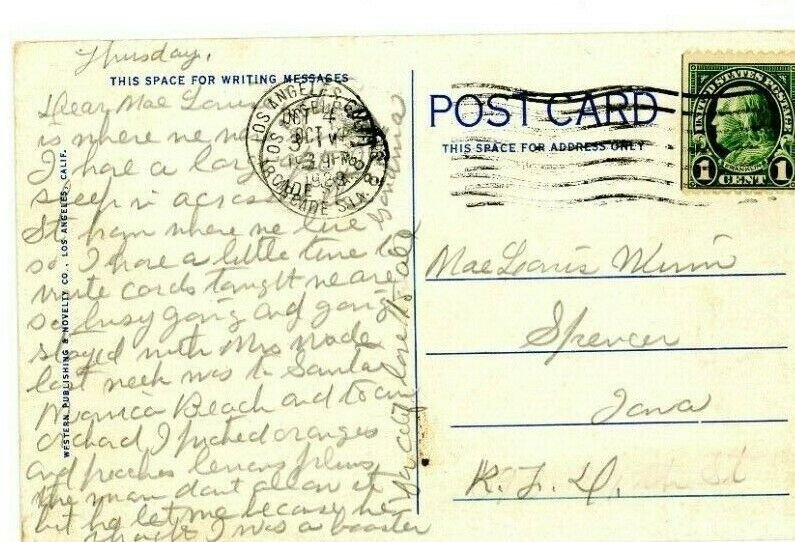 Thursday,
THIS SPACE FOR WRITING MESSAGES
Dear Mae Louis
is where we
I have a
sleep in across
St from where we live
so I have a little time to
write cards tonight we are
so busy going and going
stayed with Mrs Wade
last week was to Santa
Monica Beach and to an
orchard I picked oranges
and peaches lemons plums
the man dont allow it
but he let me because he
I was a booster
love to all
Grandma
WESTERN PUBLISHING & NOVELTY CO., LOS ANGELES, CALIF.
LOS ANGELES, CALIF.
OCT 4
ARCADE STA.
POST CARD
THIS SPACE FOR ADDRESS ONLY
UNITED STATES POSTAGE
FRANKLIN
1 CENT 1
Mae Louis
Spencer
Iowa
R.F.D.